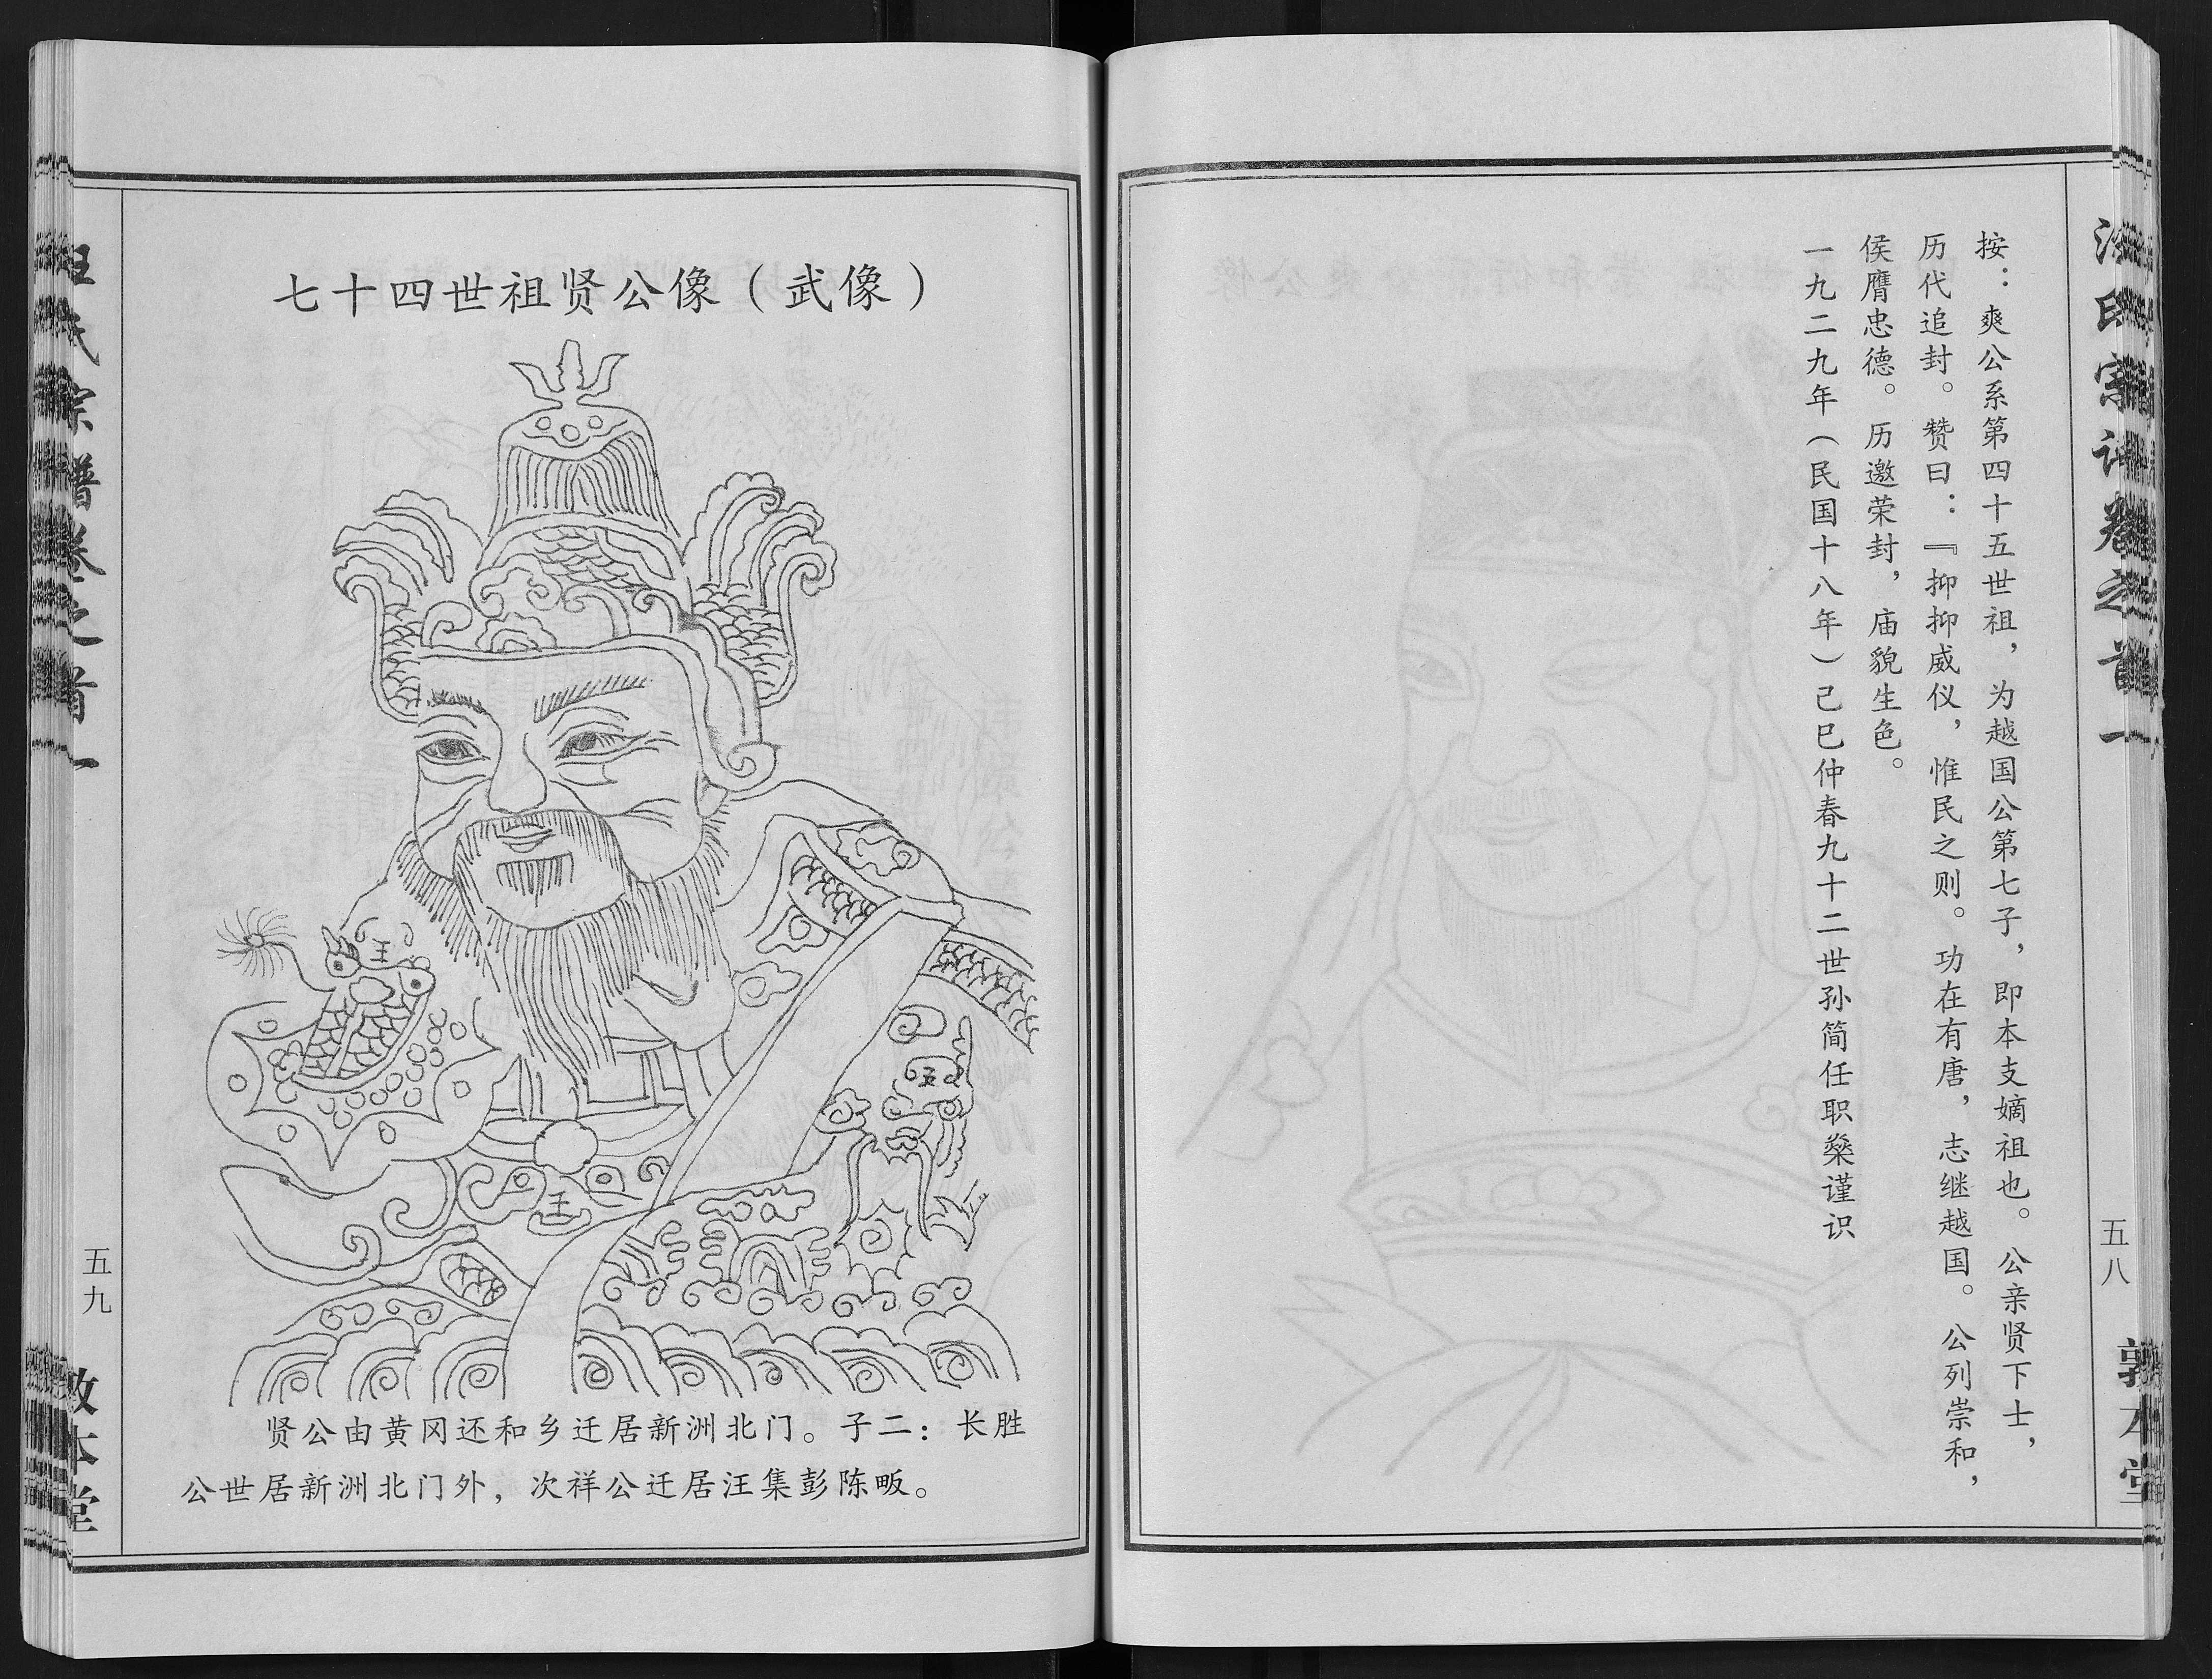 汪氏宗谱卷之首一
五八
敦本堂
按：爽公系第四十五世祖，为越国公第七子，即本支嫡祖也。公亲贤下士，
历代追封。赞曰：『抑抑威仪，惟民之则。功在有唐，志继越国。公列崇和，
侯膺忠德。历邀荣封，庙貌生色。
一九二九年（民国十八年）己巳仲春九十二世孙简任职燊谨识
七十四世祖贤公像（武像）
王
王
贤公由黄冈还和乡迁居新洲北门。子二：长胜
公世居新洲北门外，次祥公迁居汪集彭陈畈。
汪氏宗谱卷之首一
五九
敦本堂